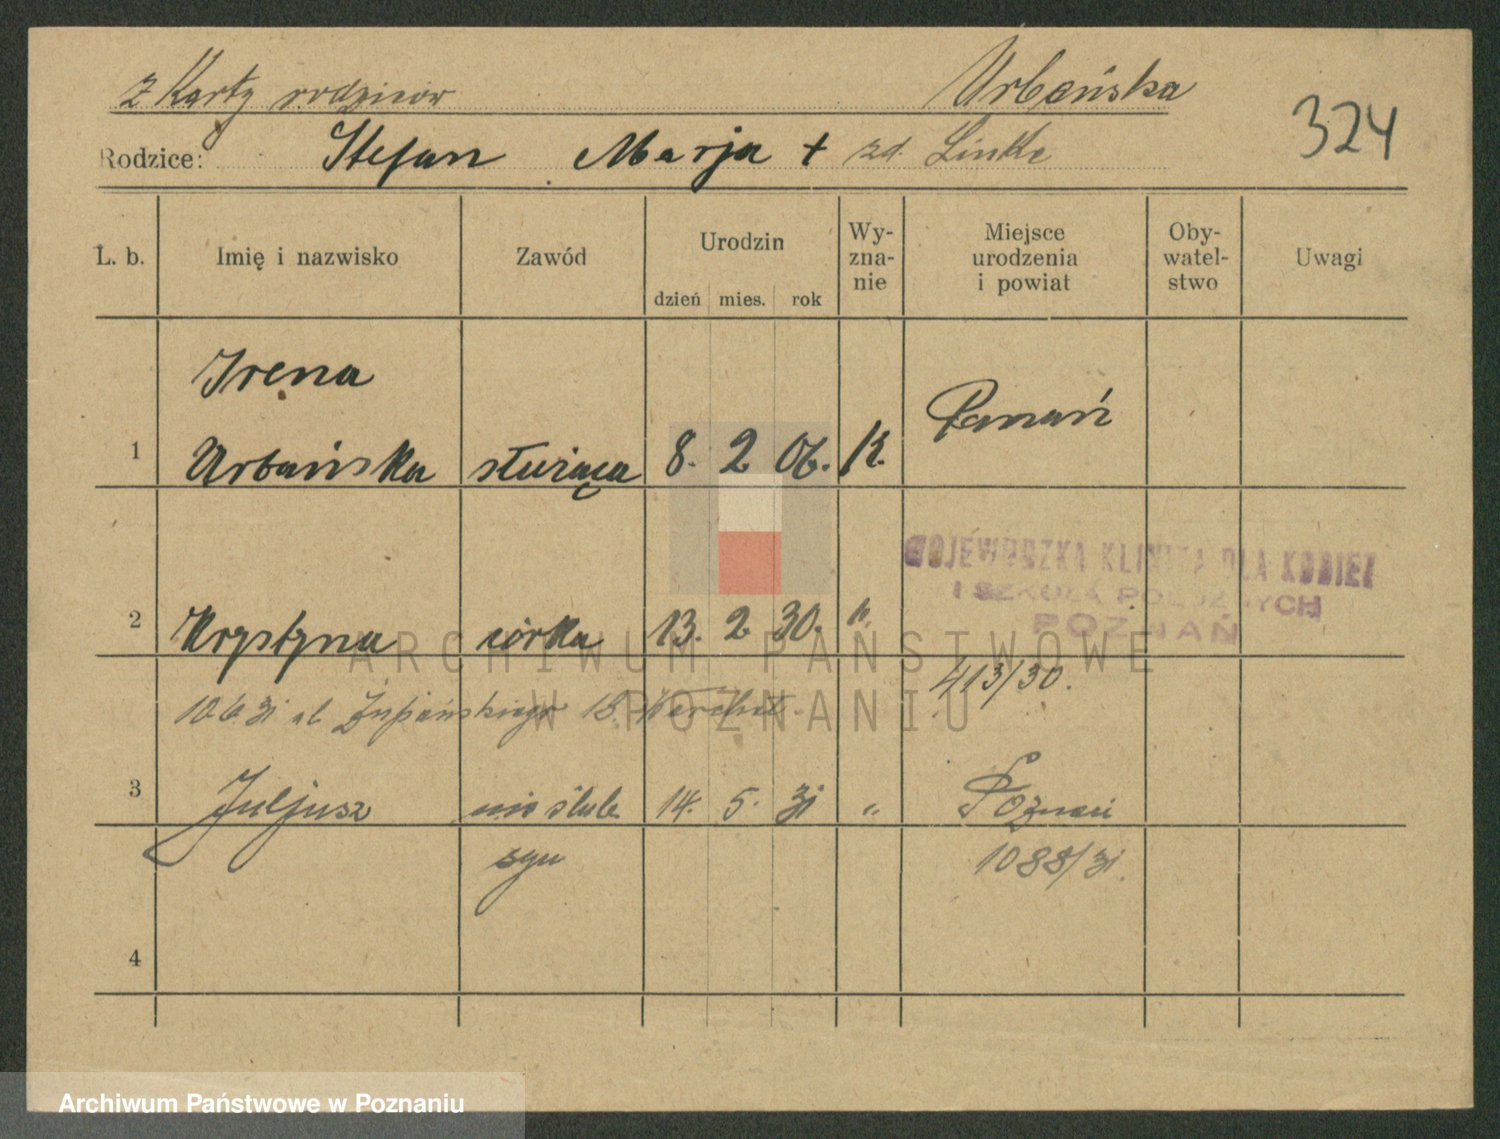 z Karty rodziców Urbańska
324
Rodzice: Stefan Marja + zd Linke
L. b. Imię i nazwisko Zawód Urodzin dzień mies. rok Wy-zna-nie Miejsce urodzenia i powiat Oby-watel-stwo Uwagi
Irena
1 Urbańska służąca 8. 2 06. K. Poznań
WOJEWÓDZKA KLINIKA DLA KOBIET
I SZKOŁA POŁOŻNYCH
POZNAŃ
2 Krystyna córka 13. 2 30. "
ARCHIWUM PAŃSTWOWE
W POZNANIU
413/30.
10.6.31 ul Żupańskiego 15
3 Juljusz nieślub. 14. 5. 31 " Poznań
syn 1088/31.
4
Archiwum Państwowe w Poznaniu